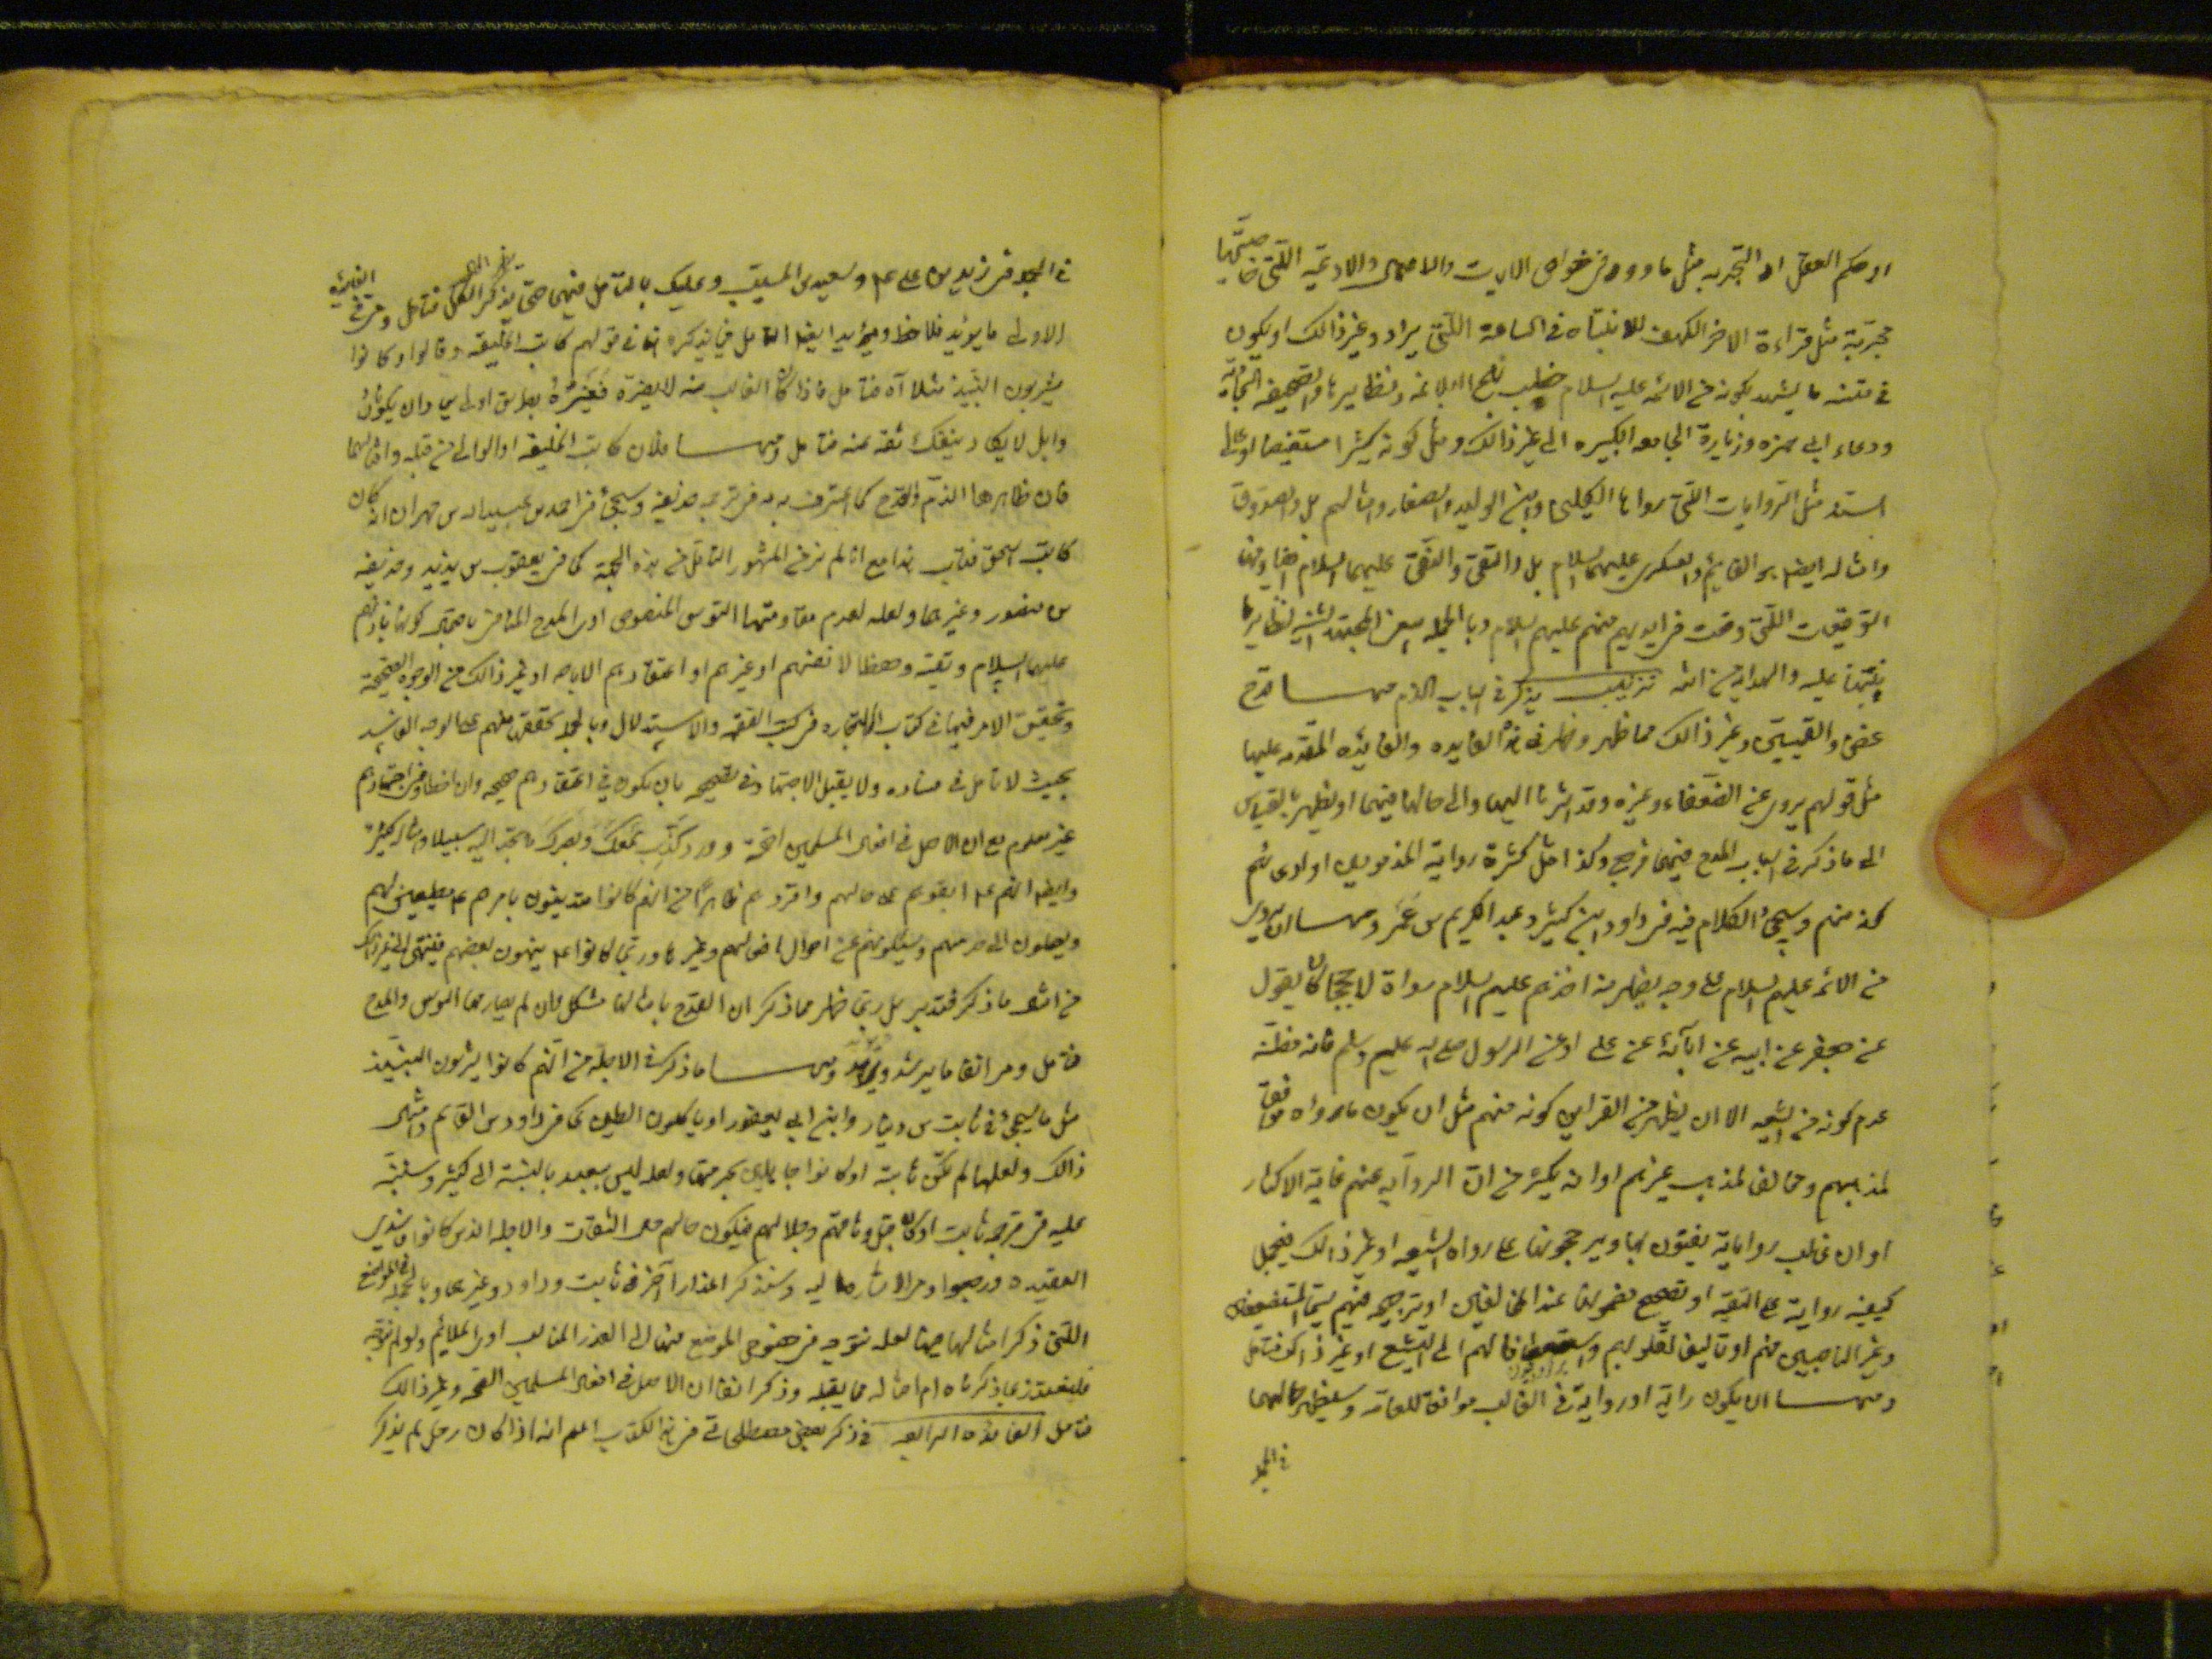 او حكم العقل او التجربه مثل ما ورد فى خواص الايات والاعمال والادعيه اللتى خاصيتها
مجربة مثل قراءة الاخر الكهف للانتباه فى الساعة اللتى يراد وغير ذالك او يكون
فى متنه ما يشهد بكونه من الائمه عليه السلام خطب نهج البلاغه ونظايرها والصحيفه السجادية
ودعاء ابى حمزه وزيارة الجامعه الكبيره الى غير ذالك ومثل كونه كثيرا مستفيضا او عالى
السند مثل الروايات اللتى رواها الكلينى وابن الوليد والصفار وامثالهم بل والصدوق
وامثاله ايضا عن القايم والعسكرى عليهما السلام بل والتقى والنقى عليهما السلام ايضا ومنها
التوقيعات اللتى وقعت فى ايديهم منهم عليهم السلام وبالجمله ينبغى للمجتهد التنبه لنظاير ما
نبهنا عليه والهداية من الله تذنيب يذكر فى اسباب الذم منها قدح
غض والقميين وغير ذالك مما ظهر وظهر فى هذه الفايده والفايده المتقدمه عليها
مثل قولهم يروى عن الضعفاء وغيره وقد اشرنا اليها والى حالها فيهما او يظهر بالقياس
الى ما ذكر فى اسباب المدح فيهما فراجع وكذا مثل كثرة رواية المذمومين او ادعائهم
كونه منهم وسيجئ الكلام فيه فى داود ابن كثير وعبد الكريم بن عمر ومنها ان يروى
من الائمه عليهم السلام على وجه يظهر منه اخذهم عليهم السلام رواة لا حججا كان يقول
عن جعفر عن ابيه عن ابآئه عن على او عن الرسول صلى الله عليهم وسلم فانه مظنة
عدم كونه من الشيعه الا ان يظهر من القراين كونه منهم مثل ان يكون ما رواه موافقا
لمذهبهم ومخالفا لمذهب غيرهم او انه يكثر من ان الروايه عنهم غاية الاكثار
او ان غالب رواياته يفتون بها ويرجحونها على رواه الشيعه او غير ذالك فيحمل
كيفية رواية على التقيه او تصحيح مضمونها عند المخالفين او ترويجه فيهم سيما المستضعفين
وغير الناصبين منهم او تاليفا لقلوبهم واستعطافا لهم الى التشيع او غير ذالك فتامل
ومنها ان يكون راية او رواية فى الغالب موافقا للعامة وسيظهر حالهما
فى الجملة
فى الجمله فى زيد بن على عم وسعيد بن المسيب وعليك بالتامل فيهما حتى يذكر الكل فتامل ومر فى الفائده
الاولى ما يؤيد فلاحظ ويؤيد ايضا التامل فى يذكره انه فى قولهم كاتب الخليفه وقالوا وكانوا
يشربون النبيذ مثلا آه فتامل فاذا كان الغالب منه لايضره فغيره بطريق اولى سيما وان يكون
وابل لا يكاد ينفك ثقه عنه فتامل ومنها فلان كاتب الخليفه او الوالى من قبله وامثالهما
فان ظاهرهما الذم والقدح كما اعترف به مه فى ترجمه حذيفه وسيجئ فى احمد بن عبيدالله بن مهران انه كان
كاتب اسحق فتاب هذا مع انا لم نر من المشهور التامل من هذه الجهة كما فى يعقوب بن يزيد وحذيفه
بن منصور وغيرهما ولعله لعدم مقاومتهما التوثيق المنصوص او المدح المنافى باحتمال كونها باذنهم
عليهم السلام وتقية وحفظا لانفسهم او غيرهم او اعتقادهم الاباحه او غير ذالك من الوجوه الصحيحة
وتحقيق الامر فيها فى كتاب التجاره فى كتب الفقه والاستدلال وبالجمله تحققها منهم على الوجه الفاسد
بحيث لا تامل فى فساده ولا يقبل الاجتهاد فى تصحيحه بان يكون فى اعتقادهم صحيحه وان اخطاوا فى اجتهادهم
غير معلوم مع ان الاصل فى افعال المسلمين الصحة وورد كذب سمعك وبصرك ما تجد اليه سبيلا وامثاله كثيرة
وايضا انهم عم ابقوهم على حالهم واقروهم ظاهرا من انهم كانوا متدينون بامرهم عم مطيعين لهم
ويصلون الى خدمتهم ويسئلونهم عن احوال افعالهم وغيرها وربما كانوا عم ينهون بعضهم فينتهى الى غير ذالك
من امثال ما ذكر فتدبر بل ربما ظهر مما ذكر ان القدح بامثالها مشكل وان لم يصادمها التوثيق والمدح
فتامل ومر انفا ما يرشد ويؤيد ومنها ما ذكر فى الاجله من انهم كانوا يشربون النبيذ
مثل ما سيجئ فى ثابت بن دينار وابن ابى يعفور او ياكلون الطين كما فى داود بن القاسم وامثال
ذالك ولعلها لم تكن ثابتة او كانوا جاهلين بحرمتها ولعله ليس ببعيد بالنسبة الى كثير وسننبه
عليه فى ترجمه ثابت او كان قبل وثاقتهم وجلالهم فيكون حالهم حال الثقات والاجله الذين كانوا فاسدى
العقيده ورجعوا ومر الاشاره اليه وسنذكر اعذارا آخر فى ثابت وداود وغيرهما وبالجمله فى المواضع
اللتى ذكر امثالها فيها لعله نتوجه فى خصوص الموضع منها الى العذر المناسب او الملائم ولو لم نتوجه
فليعتذر بما ذكرناه او امثاله مما يقبله وذكر انفا ان الاصل فى افعال المسلمين الصحه وغير ذالك
فتامل الفائده الرابعه فى ذكر بعض مصطلحاتى فى هذا الكتاب اعلم انه اذا كان رجل لم يذكر